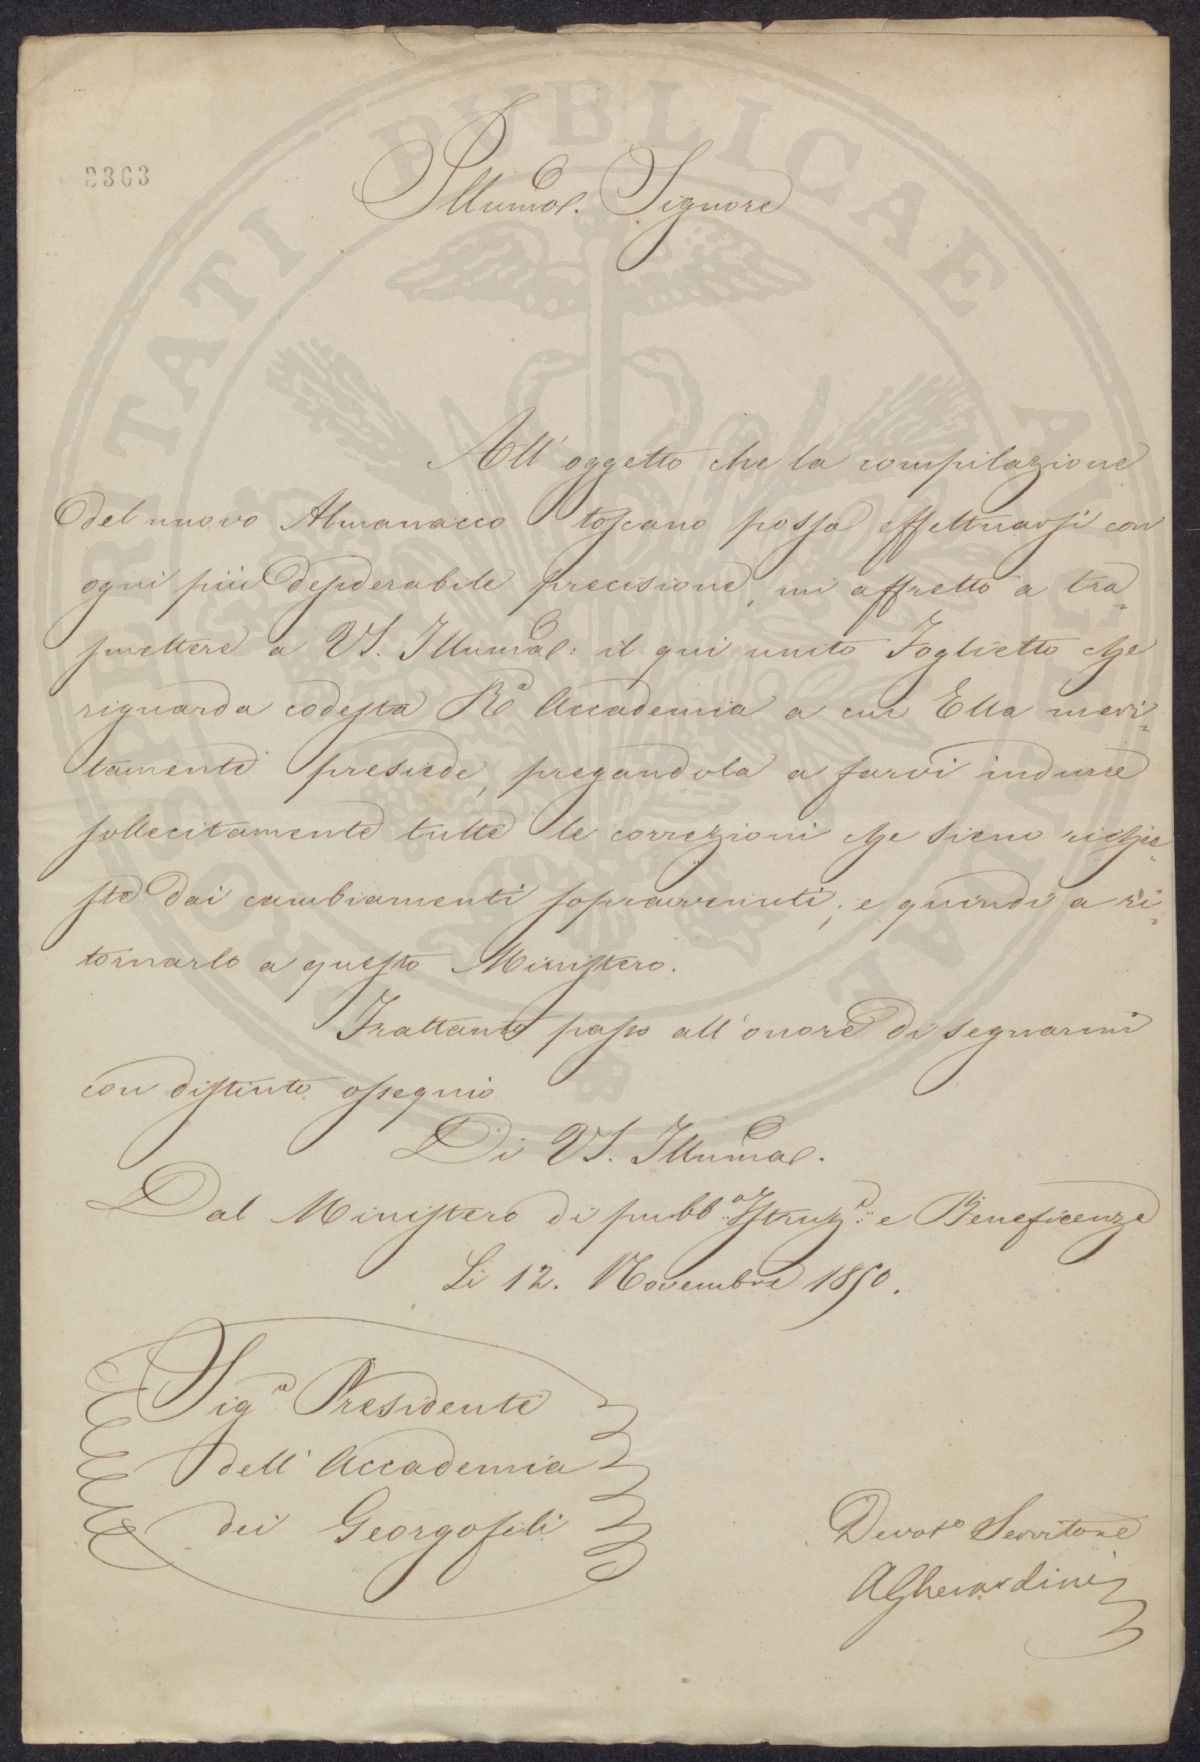 2363
Illumo. Signore
All' oggetto che la compilazione
del nuovo Almanacco toscano possa effettuarsi con
ogni più desiderabile precisione, mi affretto a tra=
smettere a VS. Illuma: il qui unito Foglietto che
riguarda codesta Ra Accademia a cui Ella meri=
tamente presiede, pregandola a farvi indurre
sollecitamente tutte le correzioni che sieno richie=
ste dai cambiamenti sopravvenuti; e quindi a ri=
tornarlo a questo Ministero.
Frattanto passo all'onore di segnarmi
con distinto ossequio
Di VS. Illuma.
Dal Ministero di pubba Istruze e Beneficenze
Li 12. Novembre 1850.
Sigr Presidente
dell' Accademia
dei Georgofili
Devoto Servitore
AGherardini
PROSPERITATI PUBLICAE AUGENDAE